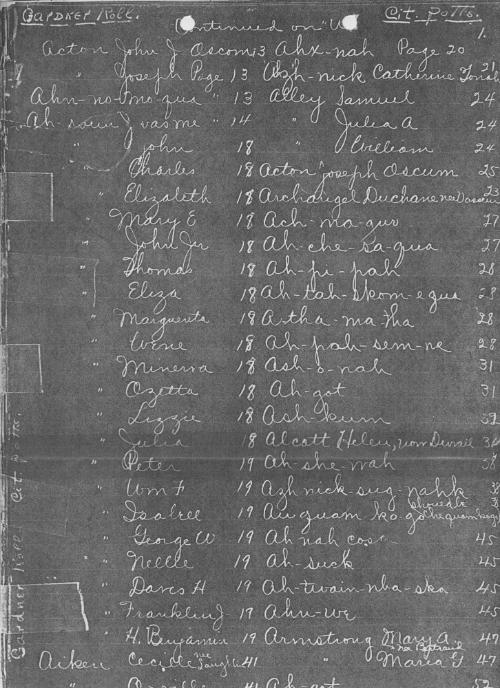 Gardner Roll. Cit. Potts.
Continued on "U" 1.
Acton John J Oscom 13 Ahx-nah Page 20
" Joseph Page 13 nick Catherine 21
Ahn-no-mo-qua " 13 Alley Samuel 24
14 " Julia A 24
" John 18 " William 24
" Charles 18 Acton Joseph Oscum 25
" Elizabeth 18 Archangel Duchane 25
" Mary E 18 Ach-ma-guv 27
" John Jr 18 Ah-che-sa-qua 27
" Thomas 18 Ah-pi-pah 28
" Eliza 18 Ah-tah-skom-e qua 28
" Marguerita 18 A-tha-ma-tha 28
" 18 Ah-pah-sem-ne 28
" Minerva 18 Ash-o-nah 31
" Ozetta 18 Ah-got 31
" Lizzie 18 Ash-kum
" Julia 18 Alcott Helen, now
" Peter 19 Ah-she-wah 38
" Wm F 19 Ash nick-sug-nahk
" Isabell 19 Au guam ko-go should be
" George W 19 Ah-nah 45
" Nellie 19 Ah-suck 45
" Davis H 19 Ah-twain-nba-ska 45
" Franklin J 19 Ahn-we 45
" H. Benjamin 19 Armstrong Mary A. 47
Aiken Cecille nee 41 " Maria G 47
" 41 Ah-got 52
Gardner Roll Cit. Potts.